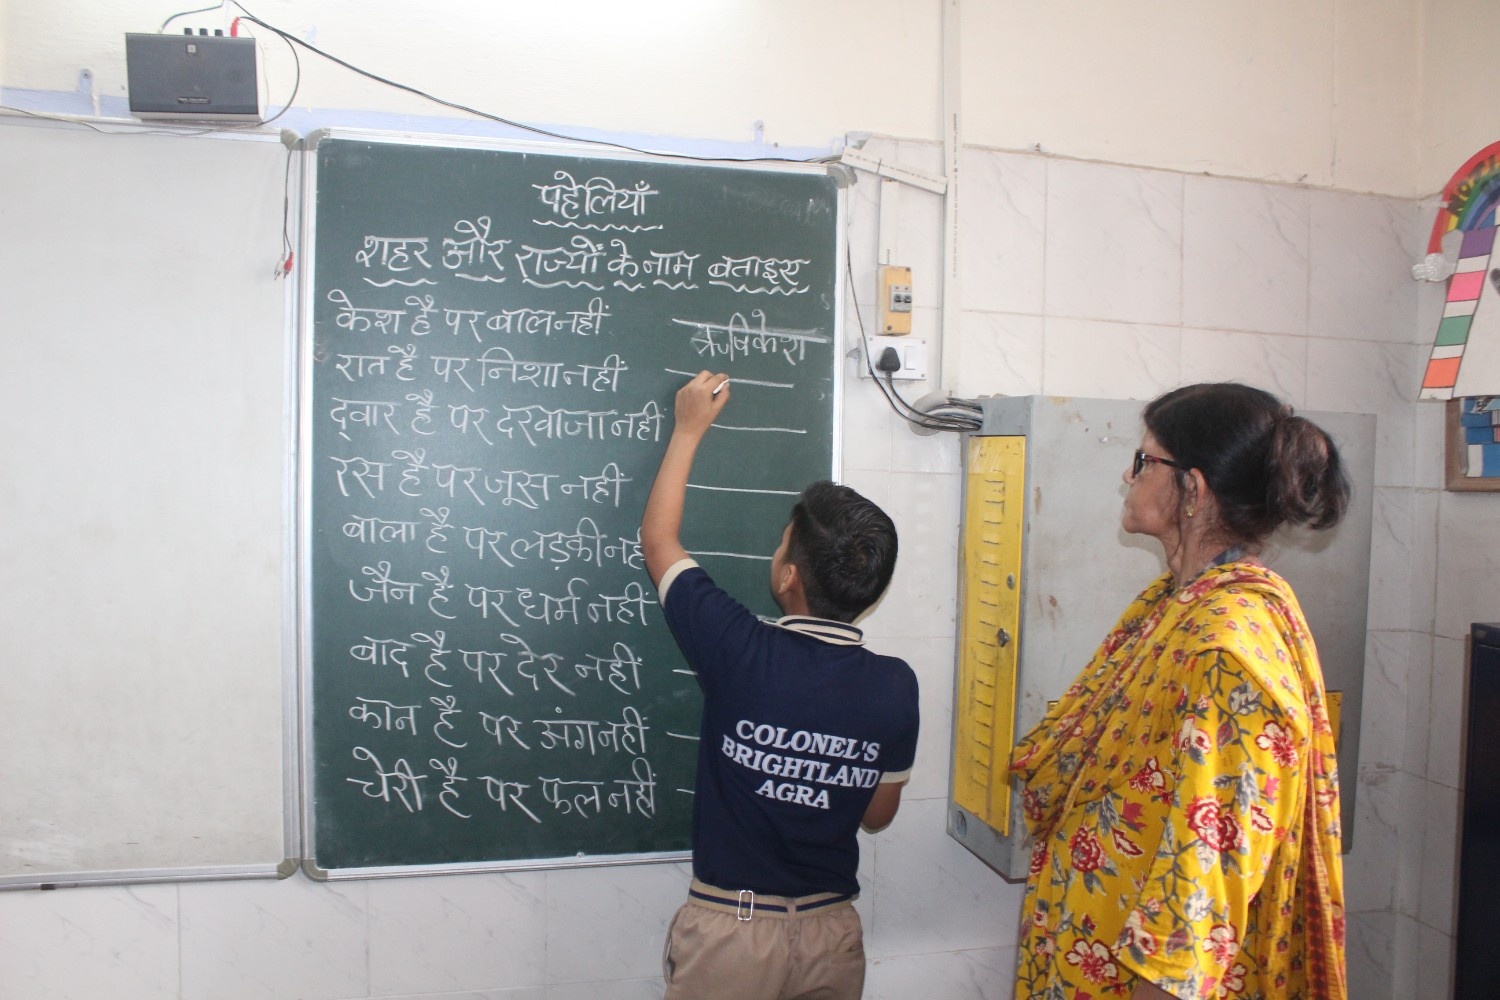 पहेलियाँ
शहर और राज्यों के नाम बताइए
केश है पर बाल नहीं ऋषिकेश
रात है पर निशा नहीं
द्वार है पर दरवाजा नहीं
रस है पर जूस नहीं
बाला है पर लड़की नहीं
जैन है पर धर्म नहीं
बाद है पर देर नहीं
कान है पर अंग नहीं
चेरी है पर फल नहीं
COLONEL'S
BRIGHTLAND
AGRA